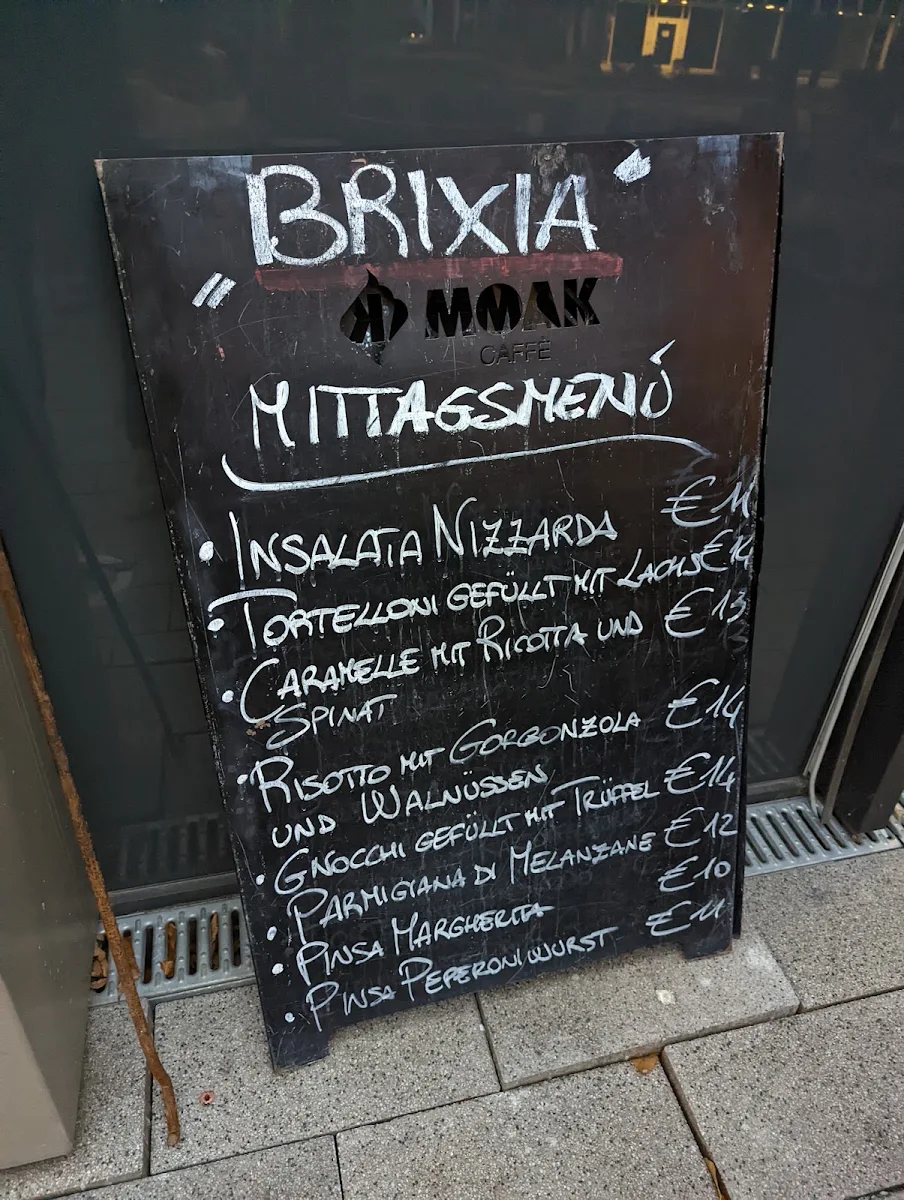 "BRIXIA"
MOAK
CAFFÈ
MITTAGSMENÚ
• INSALATA NIZZARDA €11
• TORTELLONI GEFÜLLT MIT LACHS €14
• CARAMELLE MIT RICOTTA UND €13
SPINAT
• RISOTTO MIT GORGONZOLA €14
UND WALNÜSSEN
• GNOCCHI GEFÜLLT MIT TRÜFFEL €14
• PARMIGIANA DI MELANZANE €12
• PINSA MARGHERITA €10
• PINSA PEPERONIWURST €11